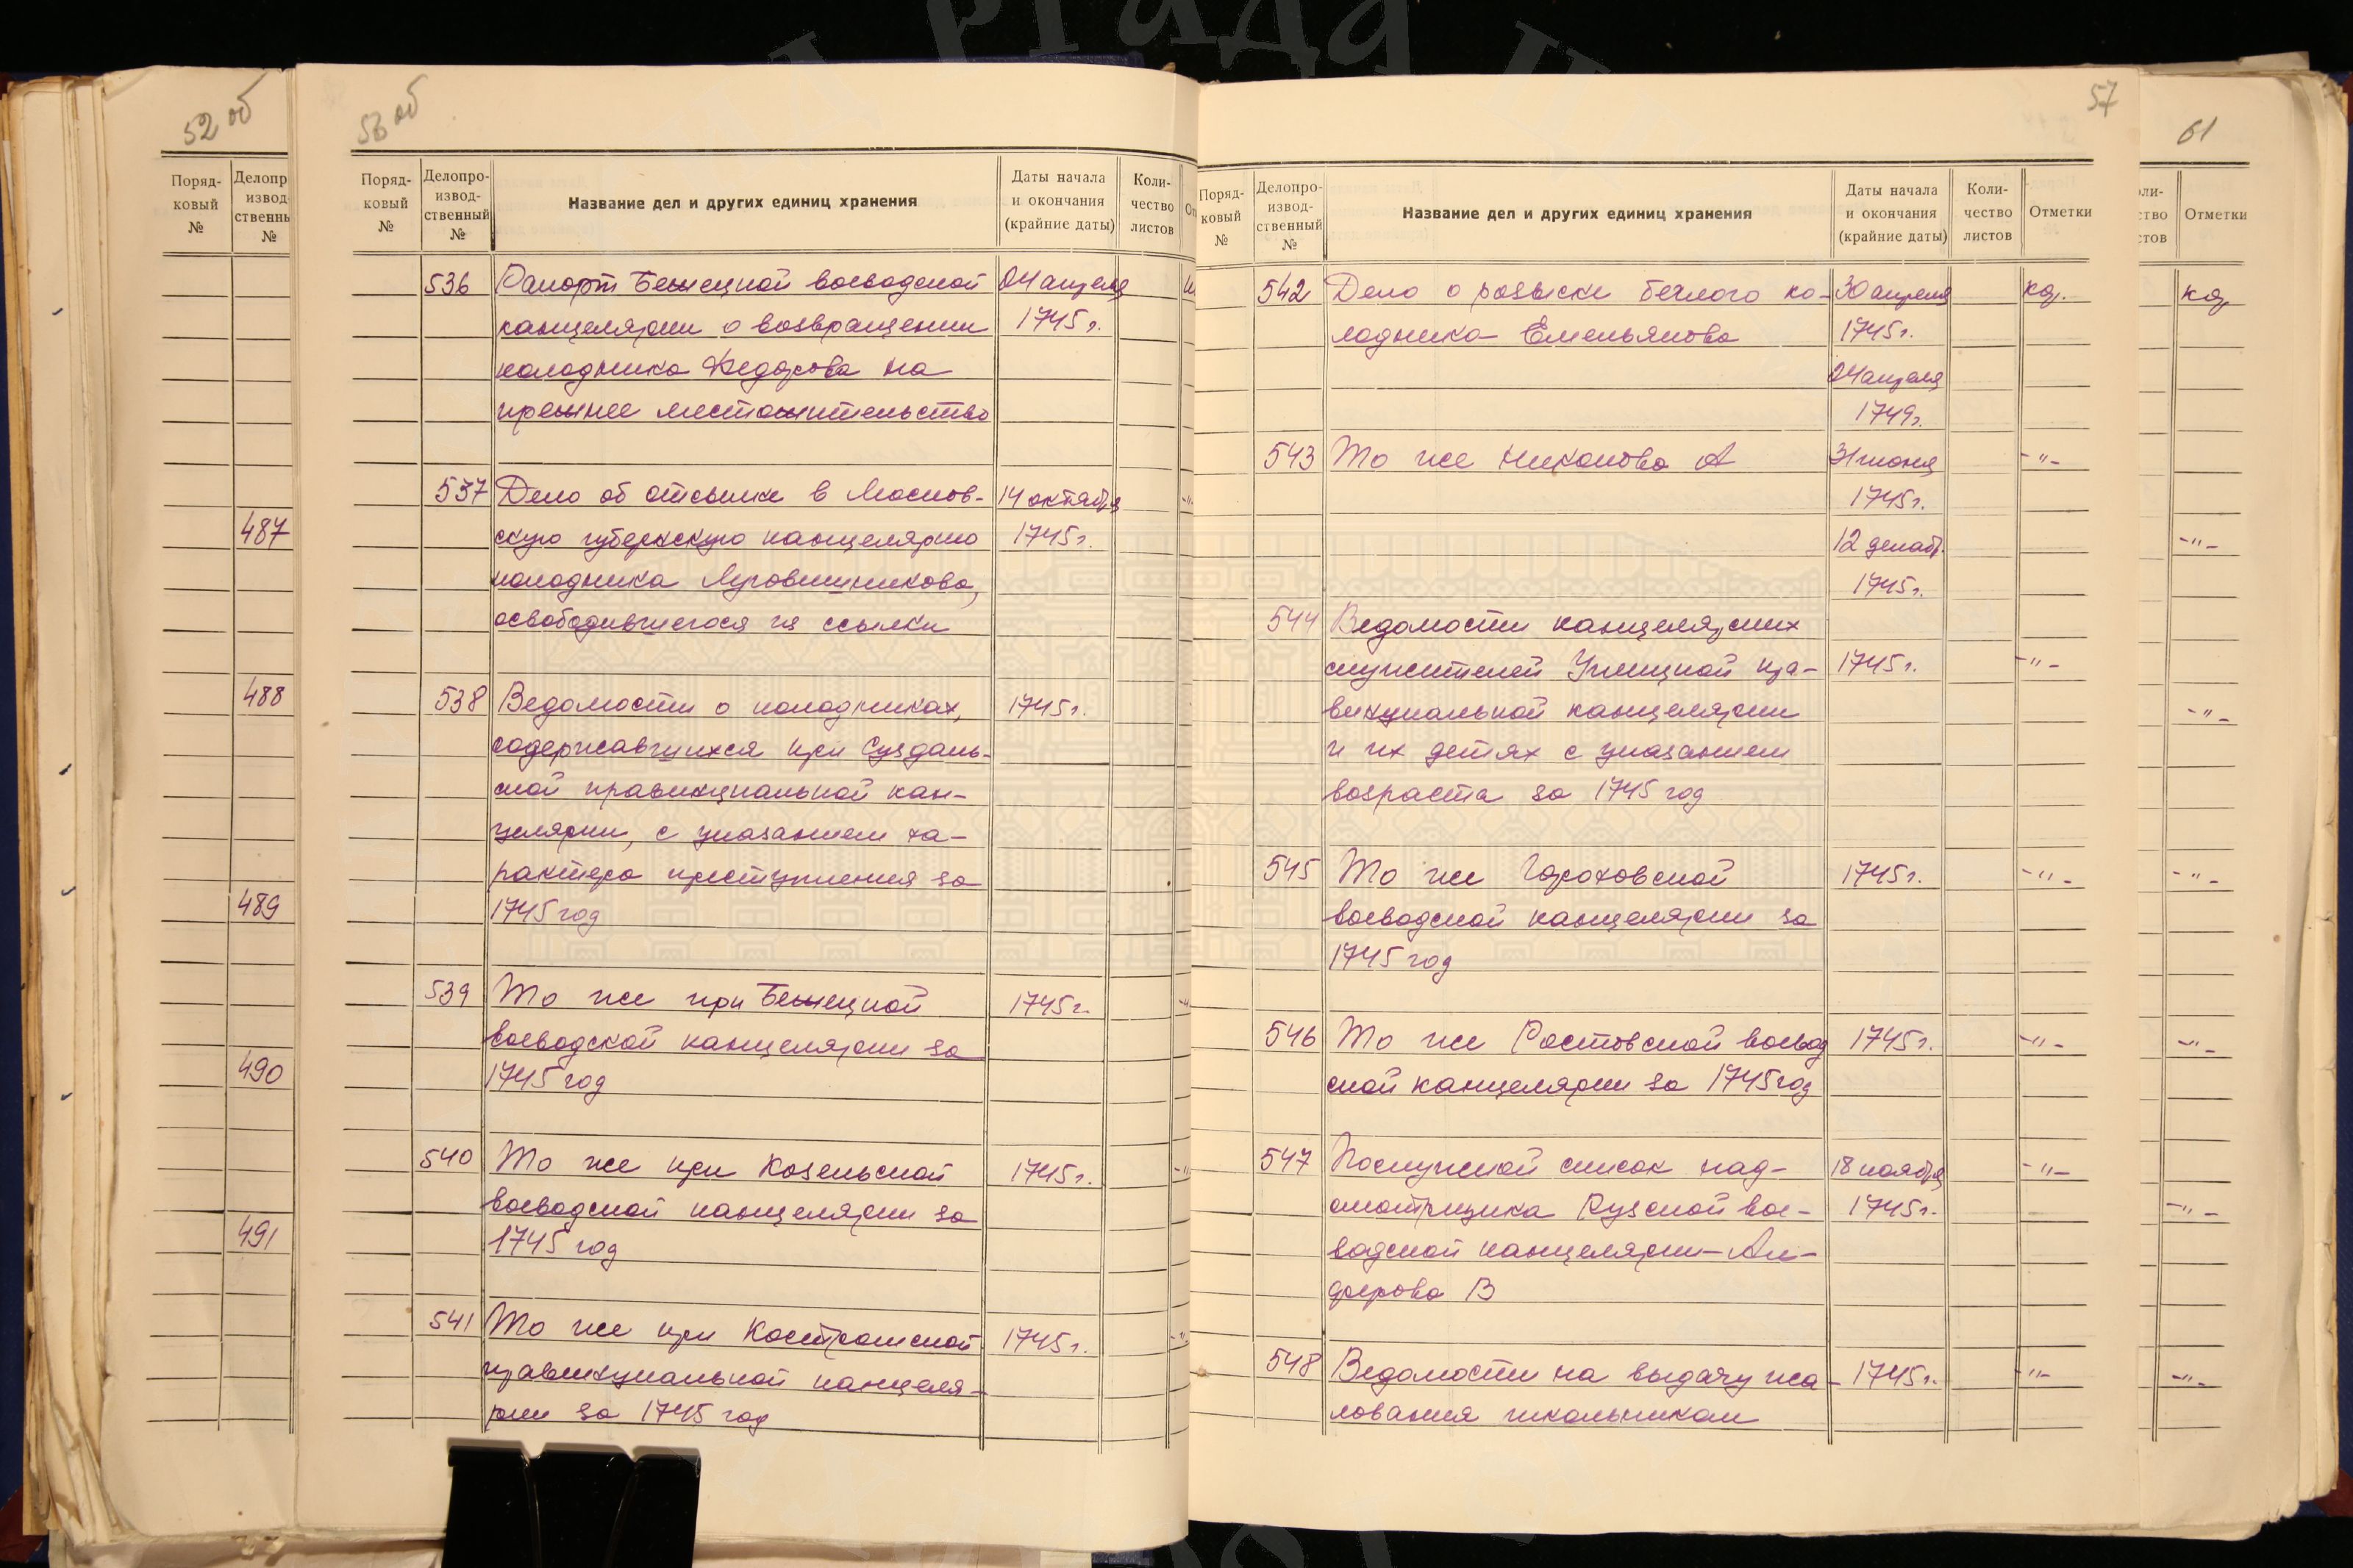 52 об
Поряд-
ковый
№
Делопр
извод
ственнь
№
487
488
489
490
491
56 об
Поряд-
ковый
№
Делопро-
извод-
ственный
№
Название дел и других единиц хранения
Даты начала
и окончания
(крайние даты)
Коли-
чество
листов
536 Рапорт Бежецкой воеводской 24 апреля
канцелярии о возвращении 1745 г.
колодника Федорова на
прежнее местожительство
537 Дело об отсылке в Москов- 14 октября -"-
скую губернскую канцелярию 1745 г.
колодника Луговишникова,
освободившегося из ссылки
538 Ведомости о колодниках, 1745 г.
содержавшихся при Суздаль-
ской провинциальной кан-
целярии, с указанием ха-
рактера преступления за
1745 год
539 То же при Бежецкой 1745 г.
воеводской канцелярии за
1745 год
540 То же при Козельской 1745 г. -"-
воеводской канцелярии за
1745 год
541 То же при Костромской 1745 г. -"-
провинциальной канцеля-
рии за 1745 год
57
Поряд-
ковый
№
Делопро-
извод-
ственный
№
Название дел и других единиц хранения
Даты начала
и окончания
(крайние даты)
Коли-
чество
листов
Отметки
542 Дело о розыске беглого ко- 30 апреля
лодника Емельянова 1745 г.
24 апреля
1749 г.
543 То же Никонова А 31 июня -"-
1745 г.
12 декабр.
1745 г.
544 Ведомости канцелярских
служителей Углицкой про- 1745 г. -"-
винциальной канцелярии
и их детях с указанием
возраста за 1745 год
545 То же Гороховской 1745 г. -"-
воеводской канцелярии за
1745 год
546 То же Ростовской воевод 1745 г. -"-
ской канцелярии за 1745 год
547 Послужной список над- 18 ноября -"-
смотрщика Рузской вое- 1745 г.
водской канцелярии – Ал-
ферова В
548 Ведомости на выдачу жа- 1745 г. -"-
лования школьникам
61
оли-
ство
стов
Отметки
-"-
-"-
-"-
-"-
-"-
-"-
ргада